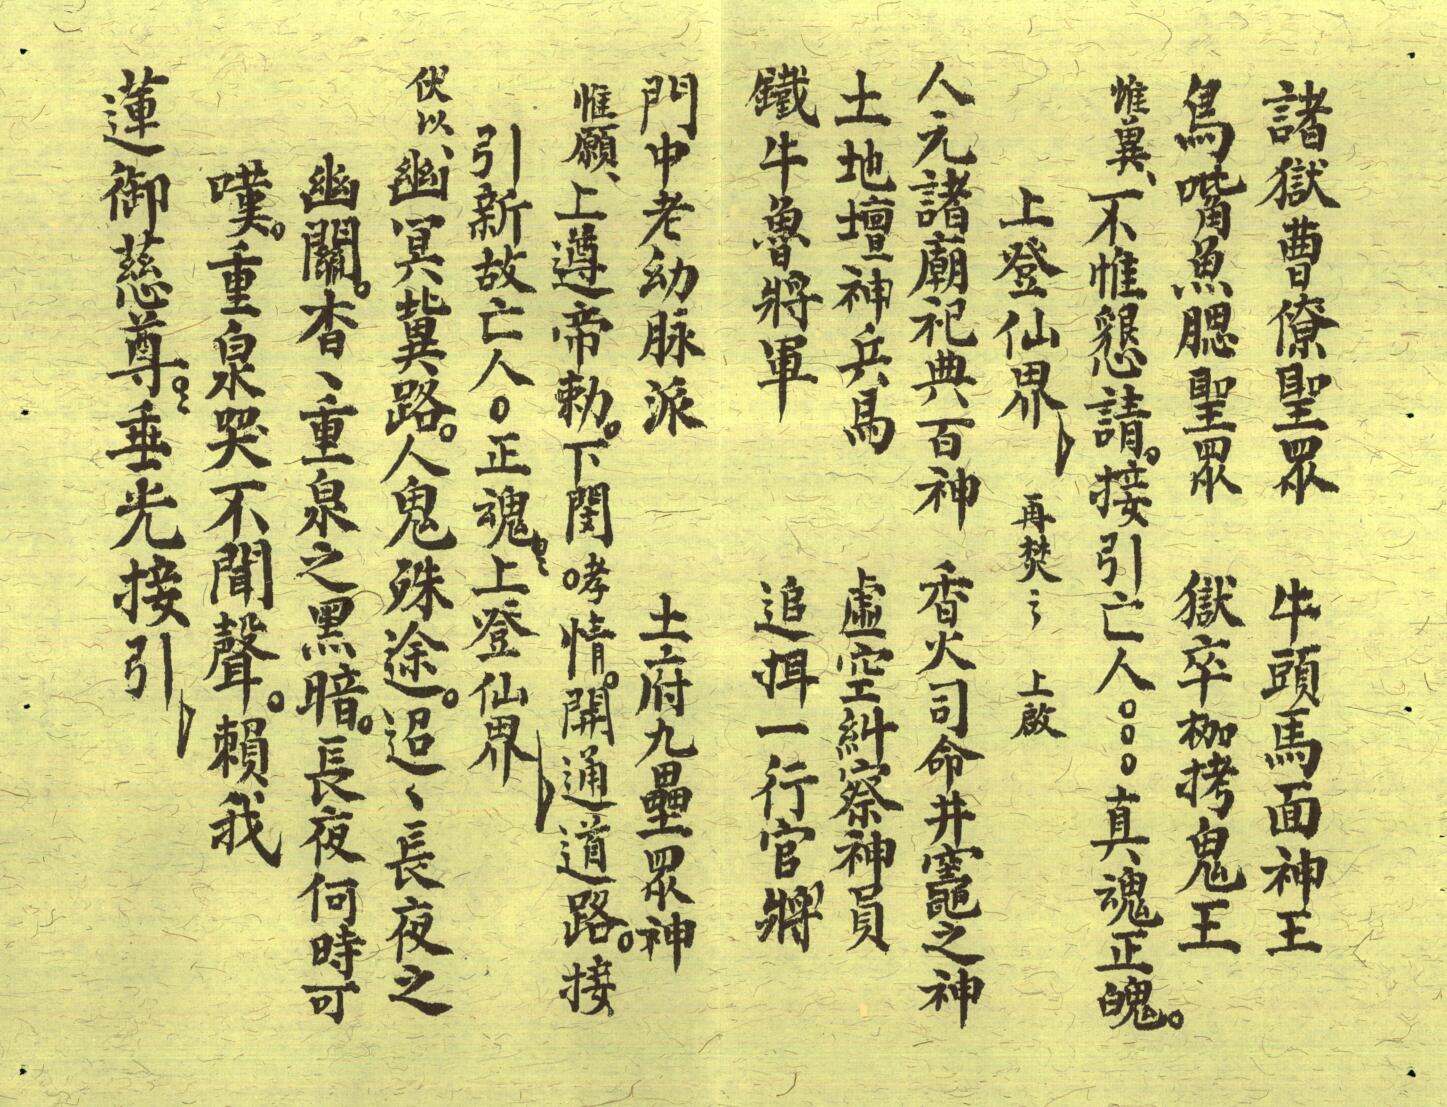 諸獄曹僚聖眾　牛頭馬面神王
鳥嘴魚腮聖眾　獄卒枷拷鬼王
惟冀、不惟懇請。接引亡人○○○真魂正魄。
上登仙界　再焚〻　上啟
人元諸廟祀典百神　香火司命井竈之神
土地壇神兵馬　虛空糾察神員
鐵牛魯將軍　追揖一行官將
門中老幼脉派　土府九壘眾神
惟願、上遵帝勅。下閔○孝情。開通道路。接
引新故亡人○正魂上登仙界
伏以、幽冥冀路。人鬼殊途。迢、長夜之
幽關。杳、重泉之黑暗。長夜何時可
嘆。重泉哭不聞聲。賴我
蓮御慈尊垂光接引